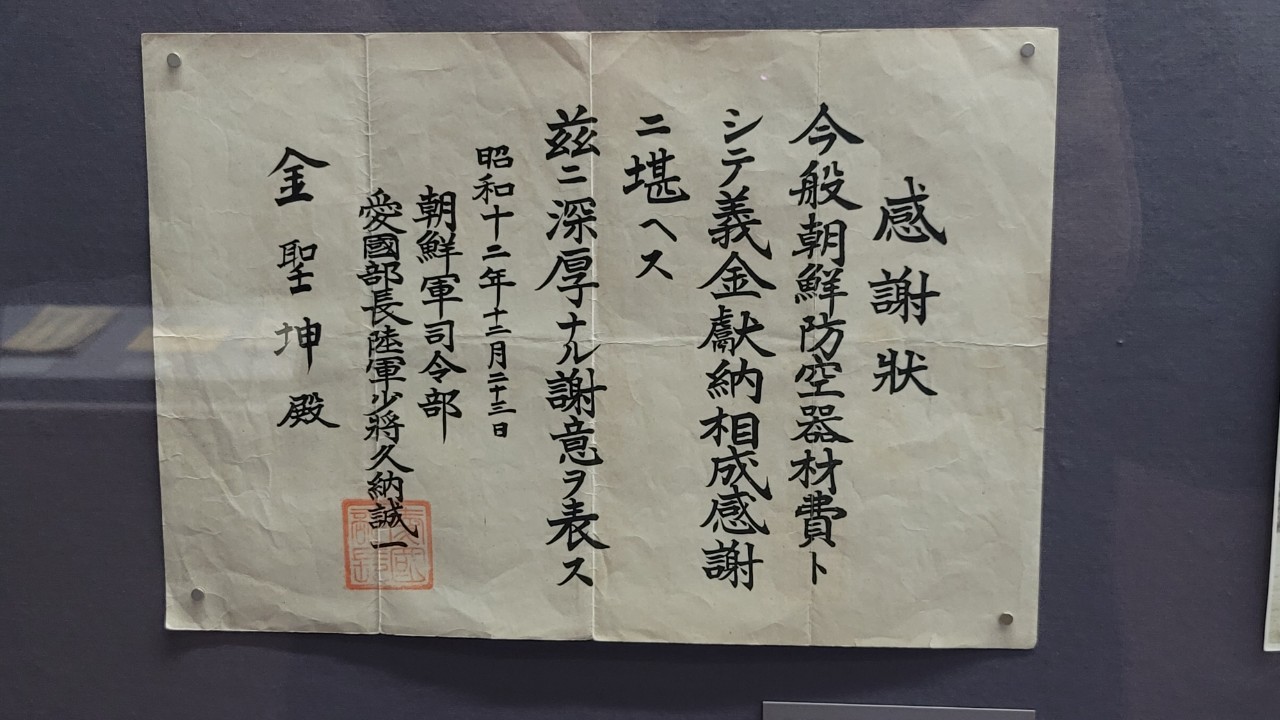 感謝狀
今般朝鮮防空器材費ト
シテ義金獻納相成感謝
ニ堪ヘス
茲ニ深厚ナル謝意ヲ表ス
昭和十二年十二月二十三日
朝鮮軍司令部
愛國部長陸軍少將久納誠一
金聖坤殿